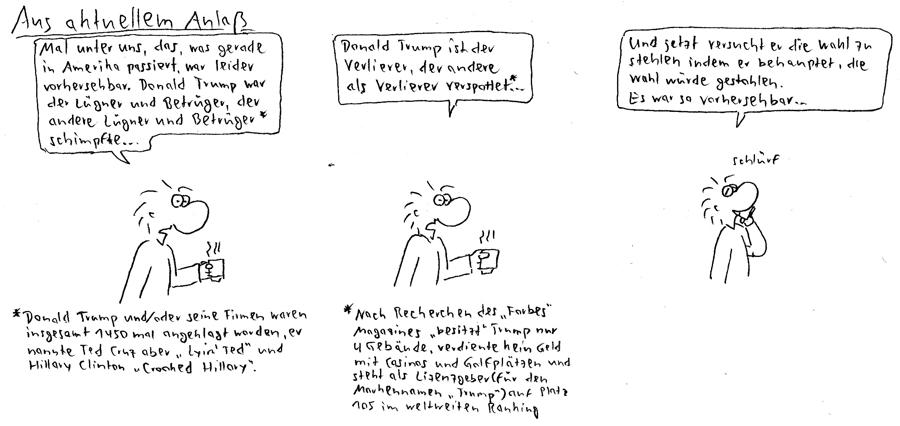 Aus aktuellem Anlaß
Mal unter uns, das, was gerade
in Amerika passiert, war leider
vorhersehbar. Donald Trump war
der Lügner und Betrüger, der
andere Lügner und Betrüger*
schimpfte...
*Donald Trump und/oder seine Firmen waren
insgesamt 1450 mal angeklagt worden, er
nannte Ted Cruz aber „Lyin' Ted" und
Hillary Clinton „Crooked Hillary".
Donald Trump ist der
Verlierer, der andere
als Verlierer verspottet*...
*Nach Recherchen des „Forbes"
Magazines „besitzt" Trump nur
4 Gebäude, verdiente kein Geld
mit Casinos und Golfplätzen und
steht als Lizenzgeber (für den
Markennamen „Trump") auf Platz
105 im weltweiten Ranking
Und jetzt versucht er die Wahl zu
stehlen indem er behauptet, die
Wahl würde gestohlen.
Es war so vorhersehbar...
schlürf